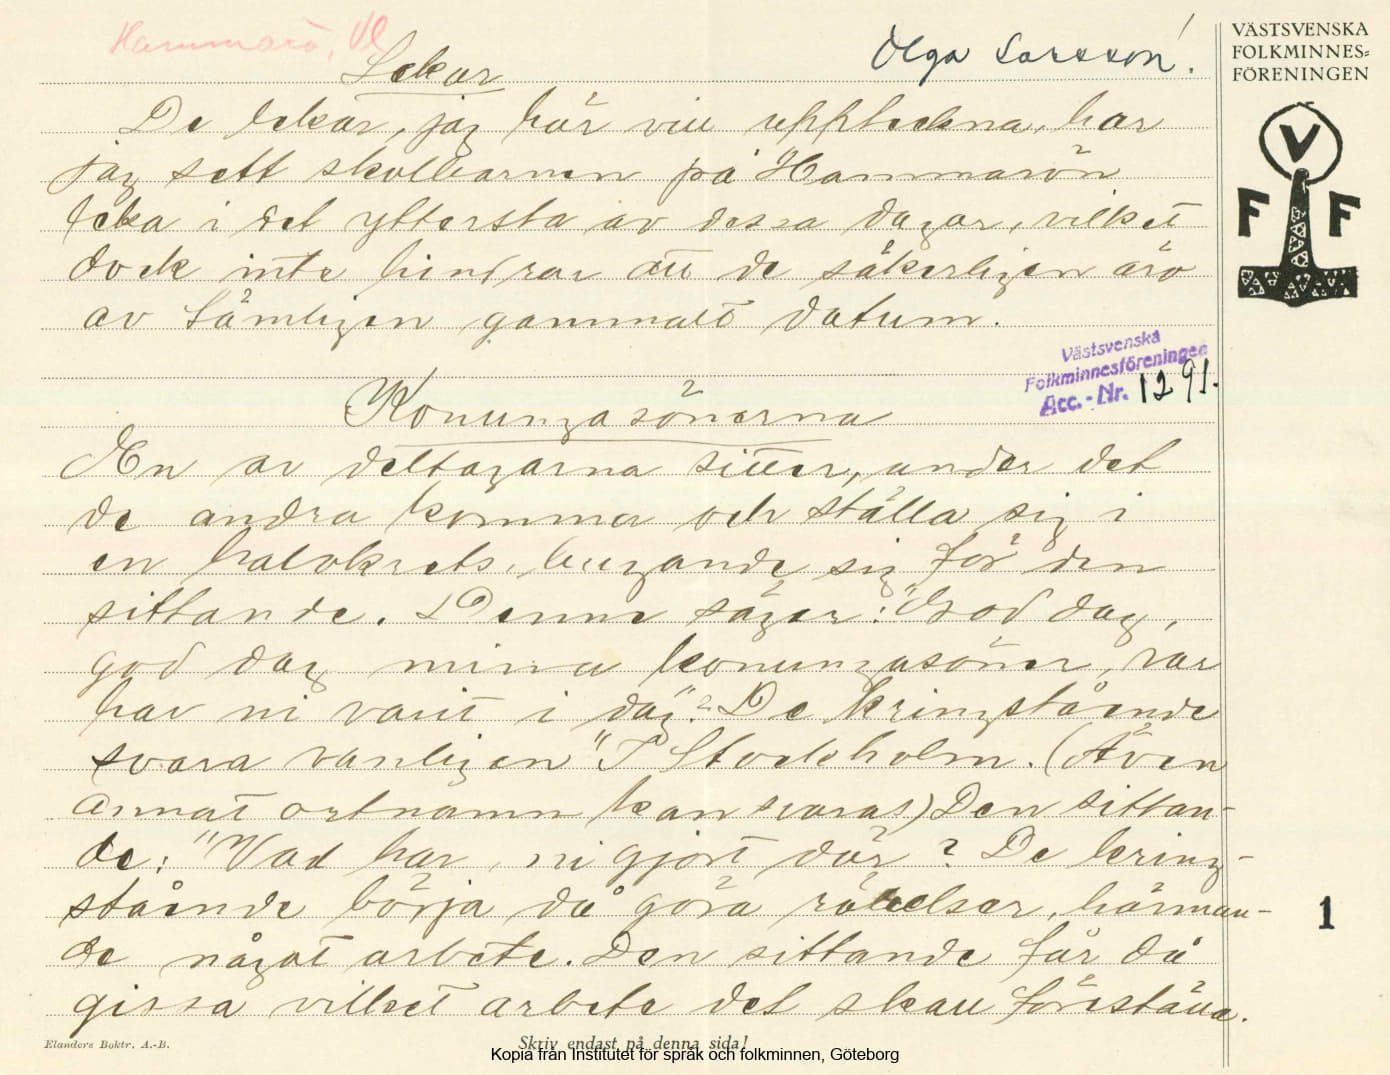 Hammarö, Vl
Olga Larsson!
VÄSTSVENSKA
FOLKMINNES=
FÖRENINGEN
V
F F
Lekar
De lekar, jag här vill uppteckna, har
jag sett skolbarnen på Hammarön
leka i det yttersta av dessa dagar, vilket
dock inte hindrar att de säkerligen äro
av tämligen gammalt datum.
Västsvenska
Folkminnesföreningen
Acc.-Nr. 1291.
Konungasönerna
En av deltagarna sitter, under det
de andra komma och ställa sig i
en halvkrets, bugande sig för den
sittande. Denne säger: "God dag,
god dag mina konungasöner, var
har ni varit i dag"? De kringstående
svara vanligen "I Stockholm. (Även
annat ortnamn kan svaras) Den sittan-
de: "Vad har ni gjort där? De kring-
stående börja då göra rörelser, härman-
de något arbete. Den sittande får då
gissa vilket arbete det skall föreställa.
1
Elanders Boktr. A.-B.
Skriv endast på denna sida!
Kopia från Institutet för språk och folkminnen, Göteborg